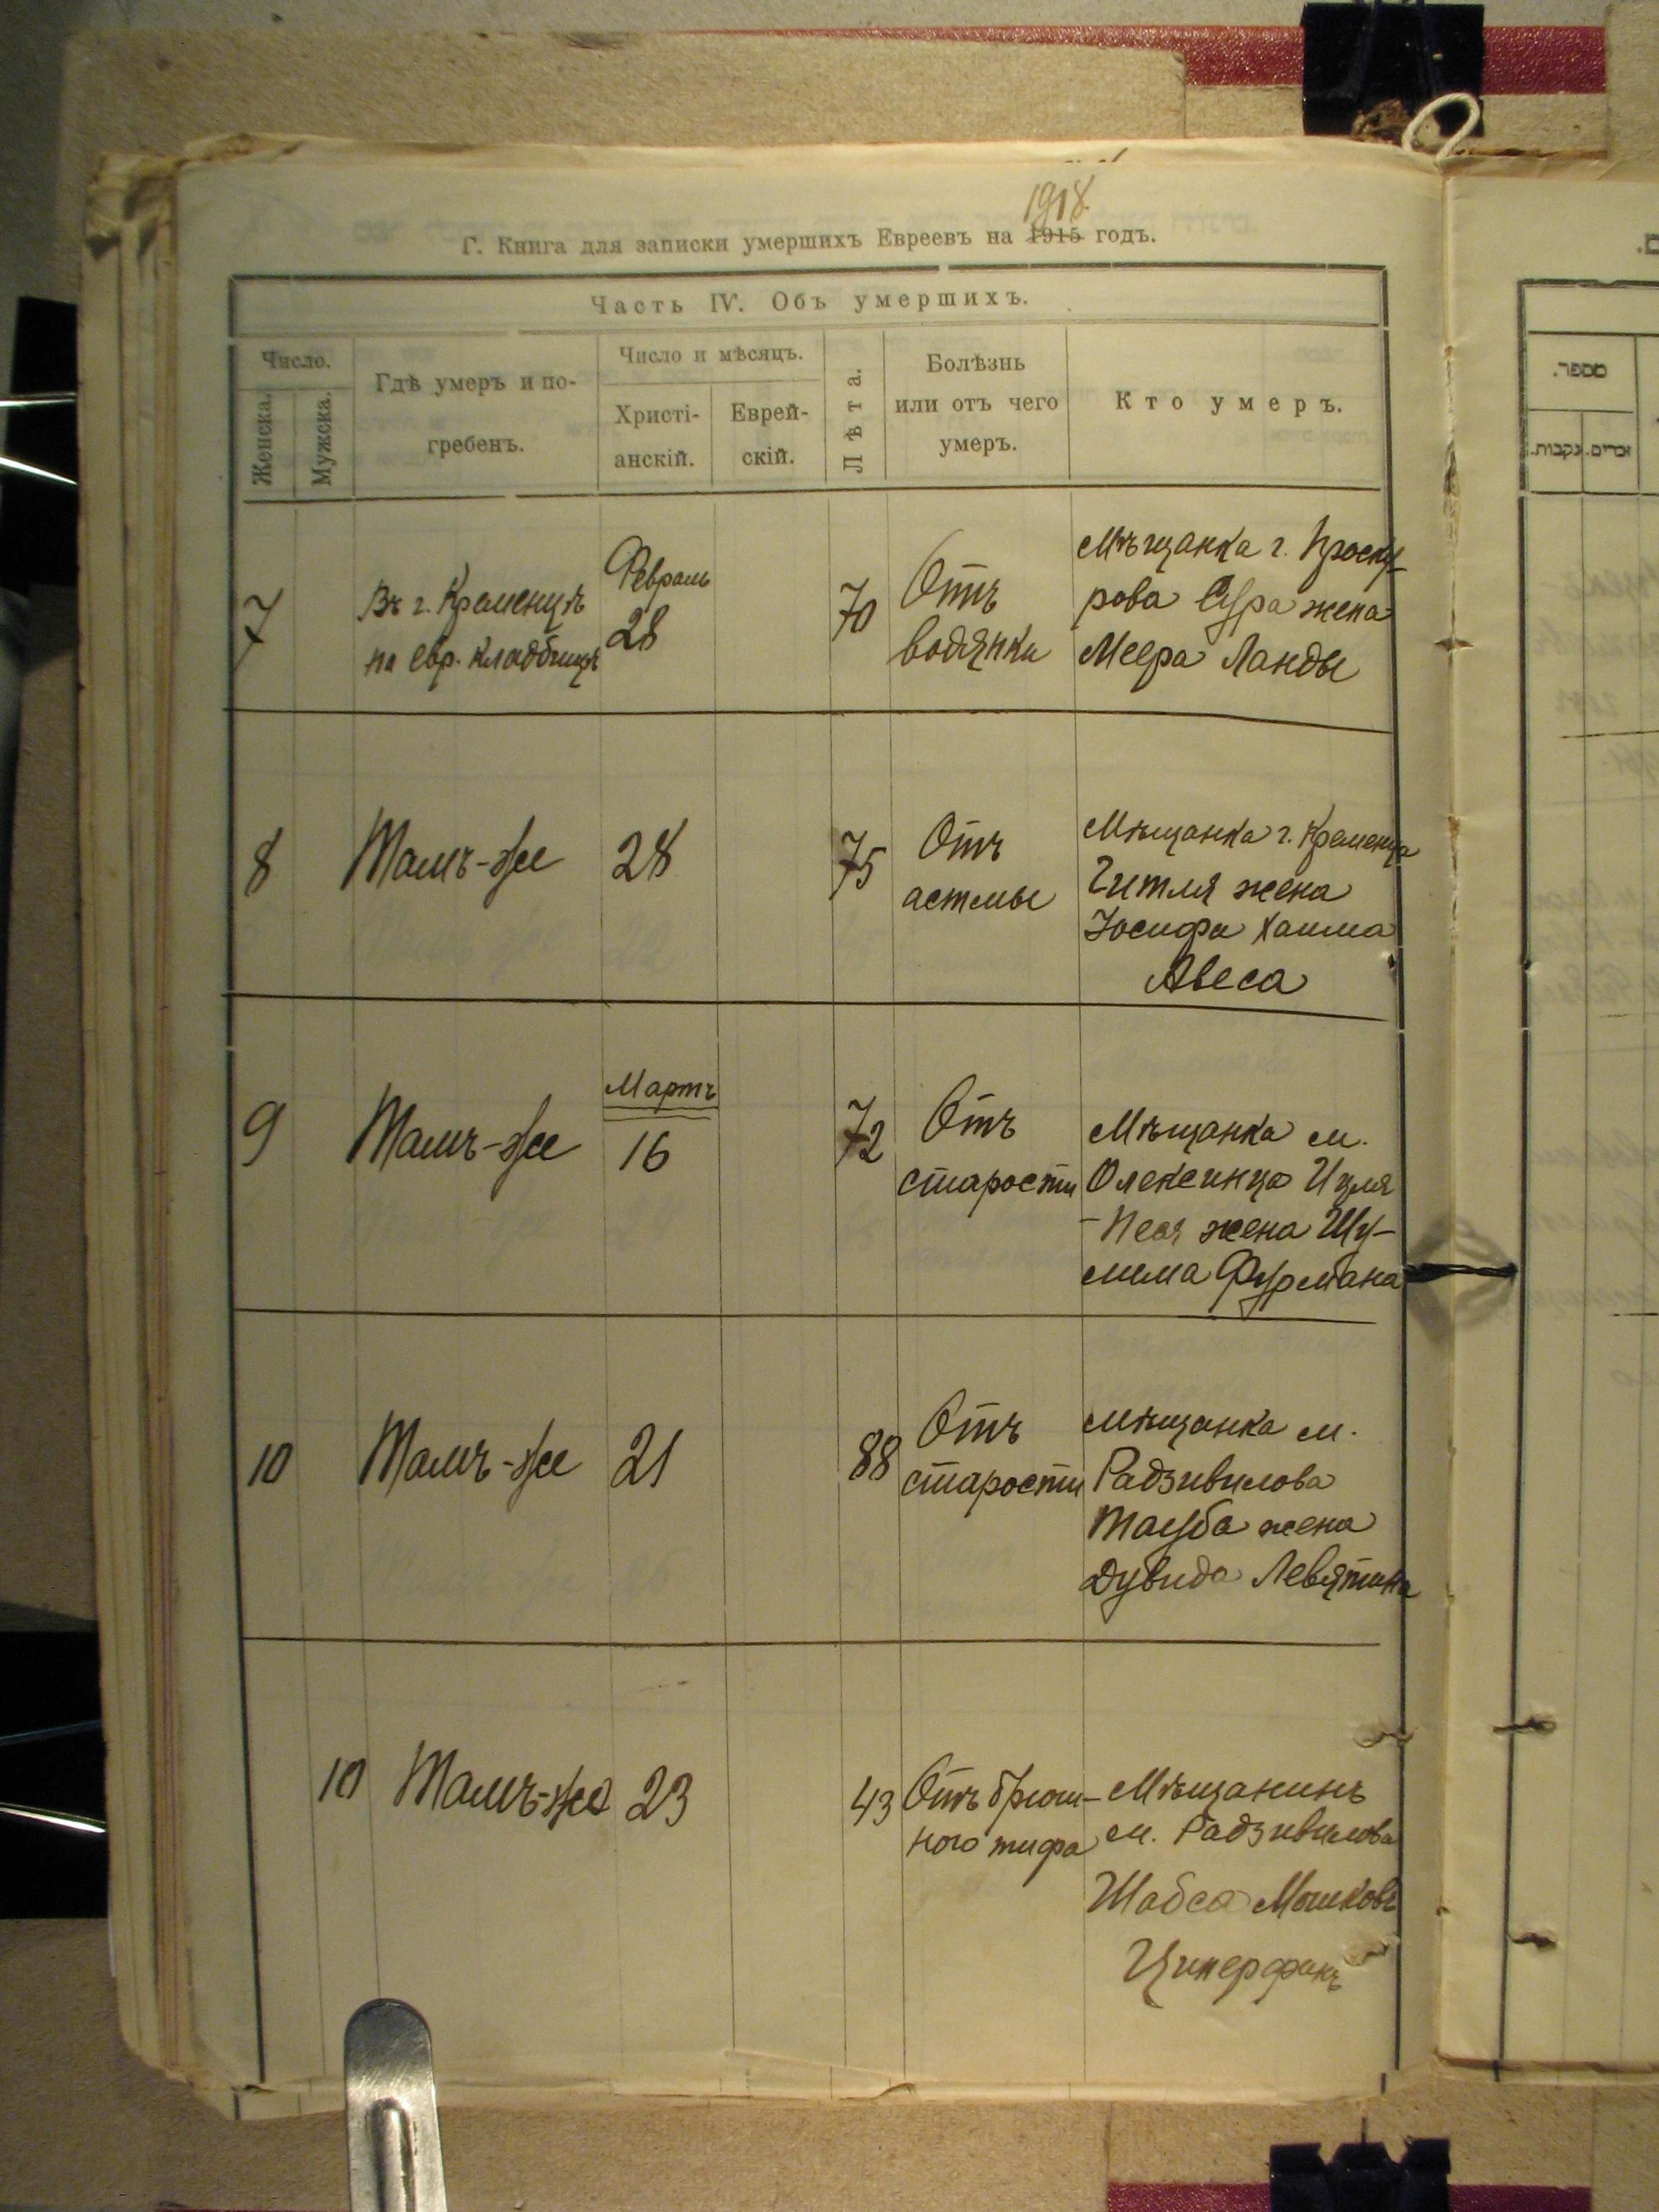 1918
Г. Книга для записки умершихъ Евреевъ на 1915 годъ.
Часть IV. Объ умершихъ.
Число.
Женска.
Мужска.
Гдѣ умеръ и по-
гребенъ.
Число и мѣсяцъ.
Христі-
анскій.
Еврей-
скій.
Лѣта.
Болѣзнь
или отъ чего
умеръ.
Кто умеръ.
7
Въ г. Кременцѣ
на евр. кладбищѣ
Февраль
28
70
Отъ
водянки
Мѣщанка г. Проску-
рова Сура жена
Меера Ланды
8
Тамъ-же
28
75
Отъ
астмы
Мѣщанка г. Кременца
Гитля жена
Іосифа Хаима
Авеса
9
Тамъ-же
Мартъ
16
72
Отъ
старости
Мѣщанка м.
Олексинца Ицля
-Песя жена Шу-
лима Фурмана
10
Тамъ-же
21
88
Отъ
старости
Мѣщанка м.
Радзивилова
Тауба жена
Дувида Левятина
10
Тамъ-же
23
43
Отъ брюш-
ного тифа
Мѣщанинъ
м. Радзивилова
Шабса Мошковъ
Циперфинъ
מספר.
זכרים.
נקבות.